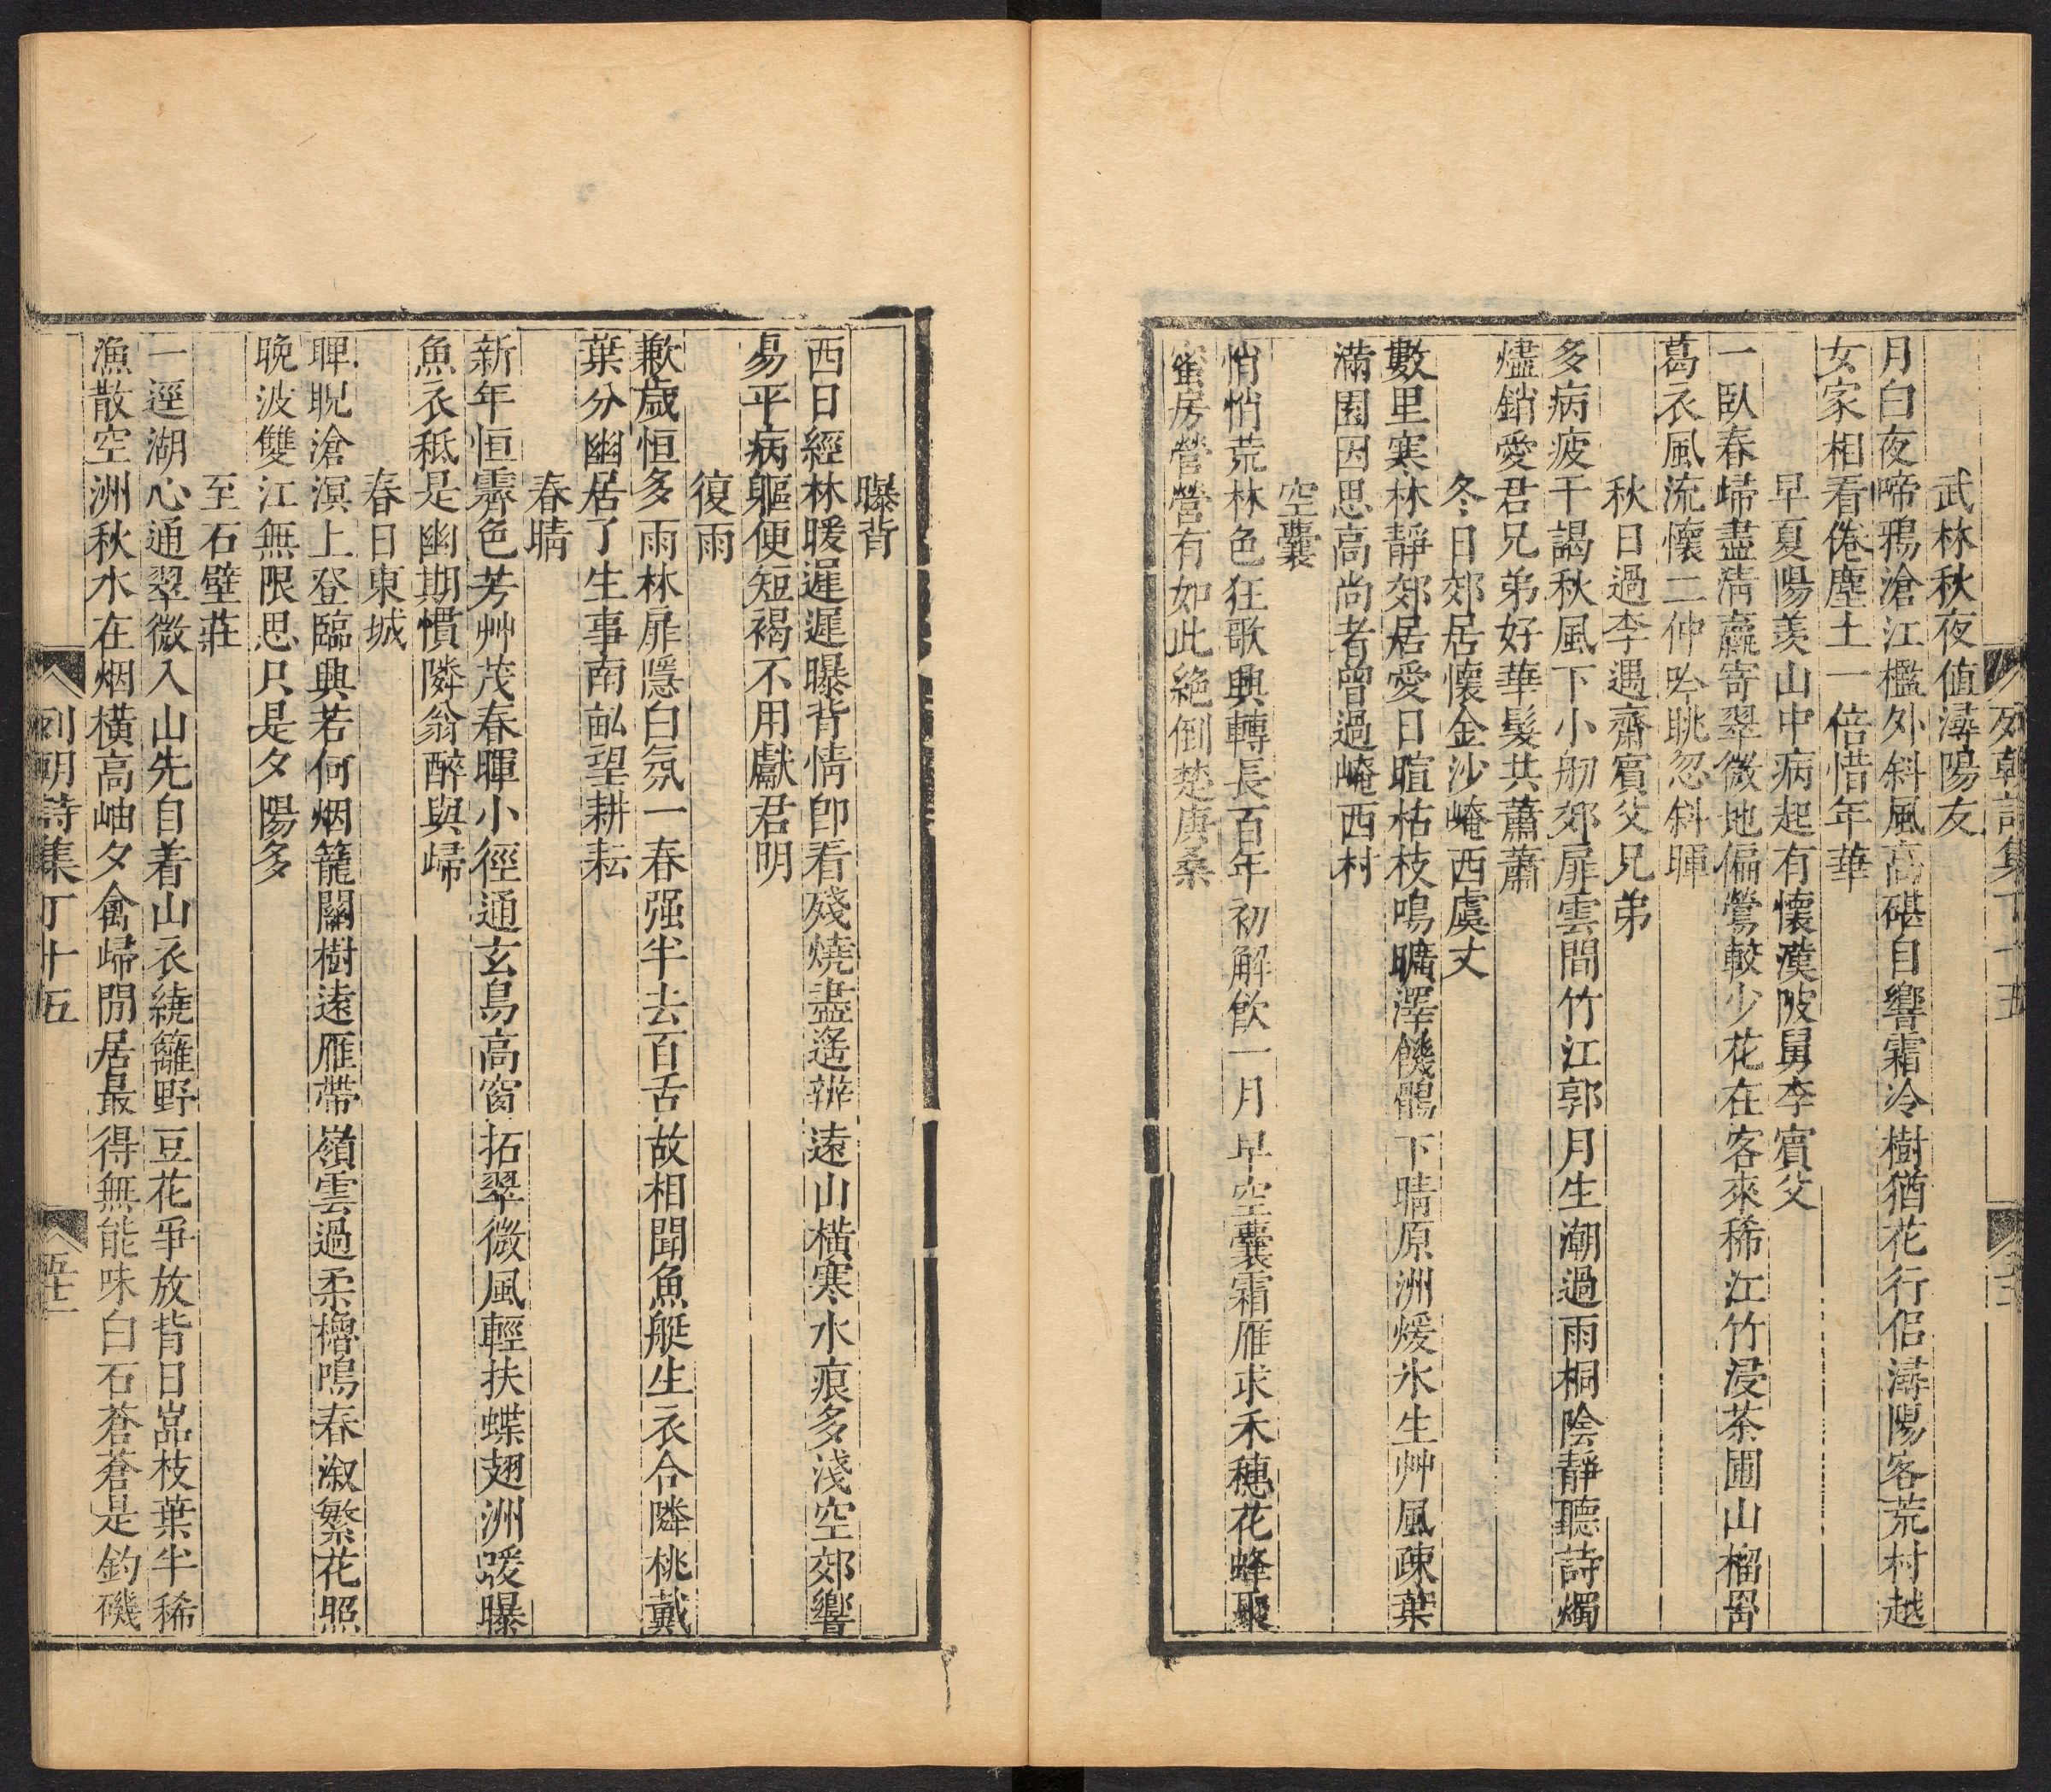 武林秋夜值潯陽友
月白夜啼鴉滄江檻外斜風高碪自響霜冷樹猶花行侶潯陽客荒村越
女家相看倦塵土一倍惜年華
早夏陽羨山中病起有懷漢陂舅李賓父
一臥春歸盡清羸寄翠微地偏鶯較少花在客來稀江竹浸茶圃山榴罥
葛衣風流懷二仲吟眺忽斜暉
秋日過李遇齋賓父兄弟
多病疲干謁秋風下小舠郊扉雲間竹江郭月生潮過雨桐陰靜聽詩燭
燼銷愛君兄弟好華髮共蕭蕭
冬日郊居懷金沙崦西虞丈
數里寒林靜郊居愛日暄枯枝鳴曠澤饑鶻下晴原洲煖氷生艸風疎葉
滿園因思高尚者曾過崦西村
空囊
悄悄荒林色狂歌興轉長百年初解飲一月早空囊霜雁求禾穗花蜂聚
蜜房營營有如此絶倒楚庚桑
列朝詩集丁十五
曝背
西日經林暖遲遲曝背情卽看殘燒盡遙辨遠山橫寒水痕多淺空郊響
易平病軀便短褐不用獻君明
復雨
歉歲恒多雨林扉隱白氛一春强半去百舌故相聞魚艇生衣合隣桃戴
葉分幽居了生事南畝望耕耘
春晴
新年恒霽色芳艸茂春暉小徑通玄鳥高窗拓翠微風輕扶蝶翅洲暖曝
魚衣秪是幽期慣隣翁醉與歸
春日東城
睥睨滄溟上登臨興若何烟籠關樹遠雁帶嶺雲過柔櫓鳴春漵繁花照
晚波雙江無限思只是夕陽多
至石壁莊
一逕湖心通翠微入山先自着山衣繞籬野豆花爭放背日嵓枝葉半稀
漁散空洲秋水在烟橫高岫夕禽歸閒居最得無能味白石蒼蒼是釣磯
列朝詩集丁十五